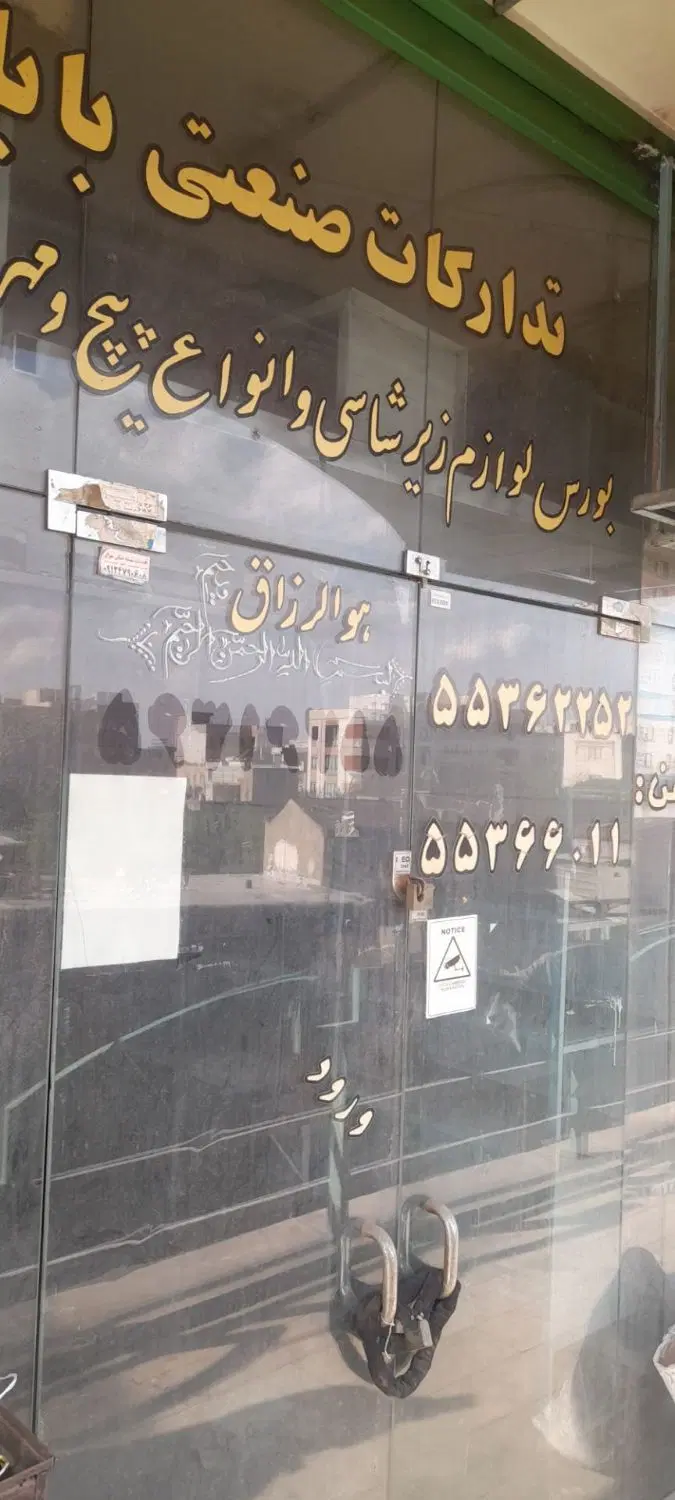 تدارکات صنعتی
بورس لوازم زیر شاسی و انواع پیچ و
هوالرزاق
بسم الله الرحمن الرحیم
۵۵۳۶۲۲۵۲
۵۵۳۶۶۰۱۱
NOTICE
ورود